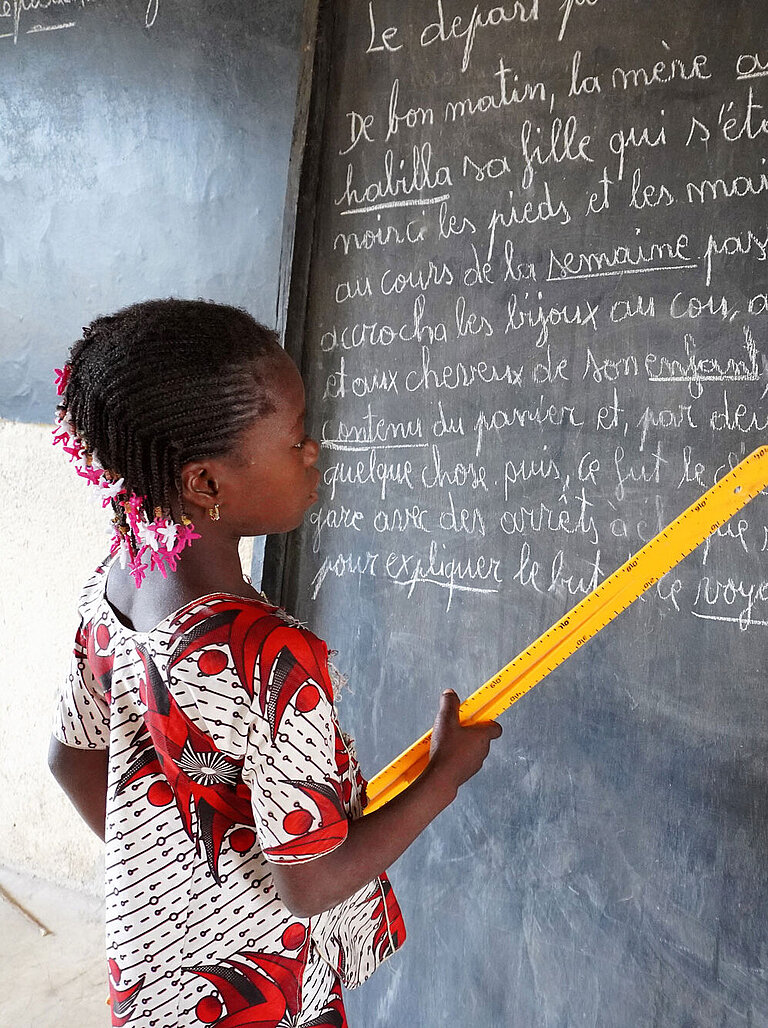 Le depart p
De bon matin, la mère
habilla sa fille qui s'ét
noirci les pieds et les mai
au cours de la semaine pas
accrocha les bijoux au cou, a
et aux cheveux de son enfant,
contenu du panier et, par der
quelque chose. puis, ce fut le
gare avec des arrêts à
pour expliquer le but voy